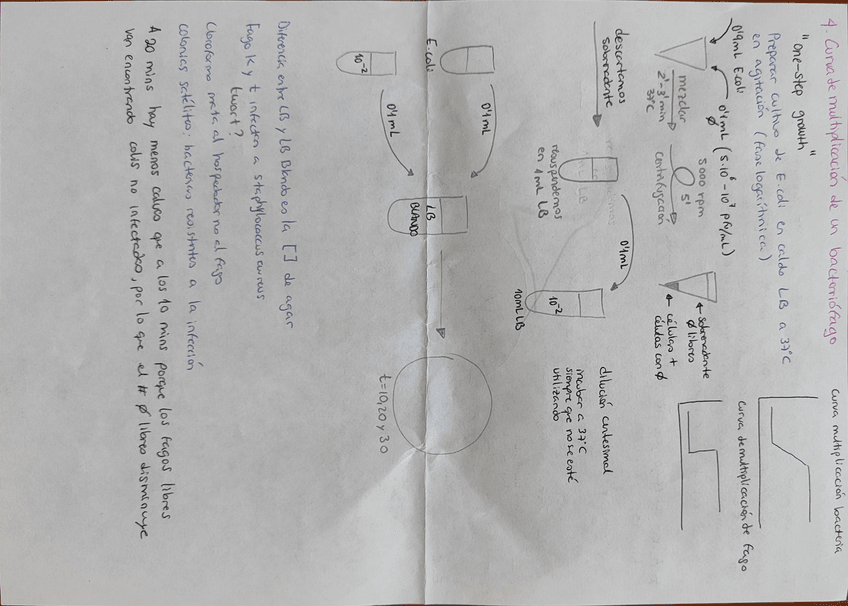 4. Curva de multiplicación de un bacteriófago
"one-step growth"
Preparar cultivo de E. coli en caldo LB a 37°C
en agitación (fase logarítmica)
0'9mL E.coli
0'1mL (5·10⁶-10⁷ pfu/mL)
Ø
mezclar
2'-3' min
37°C
5000 rpm
5'
centrifugación
sobrenadante
Ø libres
células +
células con Ø
descartamos
sobrenadante
resuspendemos
en 1 mL LB
0'1mL
10⁻²
10mL LB
dilución centesimal
incubar a 37°C
siempre que no se esté
utilizando
curva multiplicación bacteria
curva de multiplicación de fago
E.coli
0'1mL
10⁻²
0'1mL
LB
BLANDO
t=10,20 y 30
Diferencia entre LB y LB Blando es la [ ] de agar
Fago K y t infectan a staphylococcus aureus
twort?
Cloroformo mata al hospedador no al fago
colonias satélites: bacterias resistentes a la infección
A 20 mins hay menos calvas que a los 10 mins porque los fagos libres
van encontrando colis no infectados, por lo que el # Ø libres disminuye